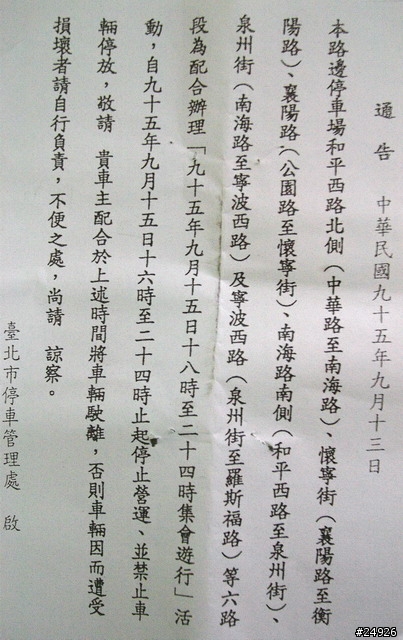 通告　中華民國九十五年九月十三日
本路邊停車場和平西路北側（中華路至南海路）、懷寧街（襄陽路至衡
陽路）、襄陽路（公園路至懷寧街）、南海路南側（和平西路至泉州街）、
泉州街（南海路至寧波西路）及寧波西路（泉州街至羅斯福路）等六路
段為配合辦理「九十五年九月十五日十八時至二十四時集會遊行」活
動，自九十五年九月十五日十六時至二十四時止起停止營運、並禁止車
輛停放，敬請　貴車主配合於上述時間將車輛駛離，否則車輛因而遭受
損壞者請自行負責，不便之處，尚請　諒察。
臺北市停車管理處　啟
#24926